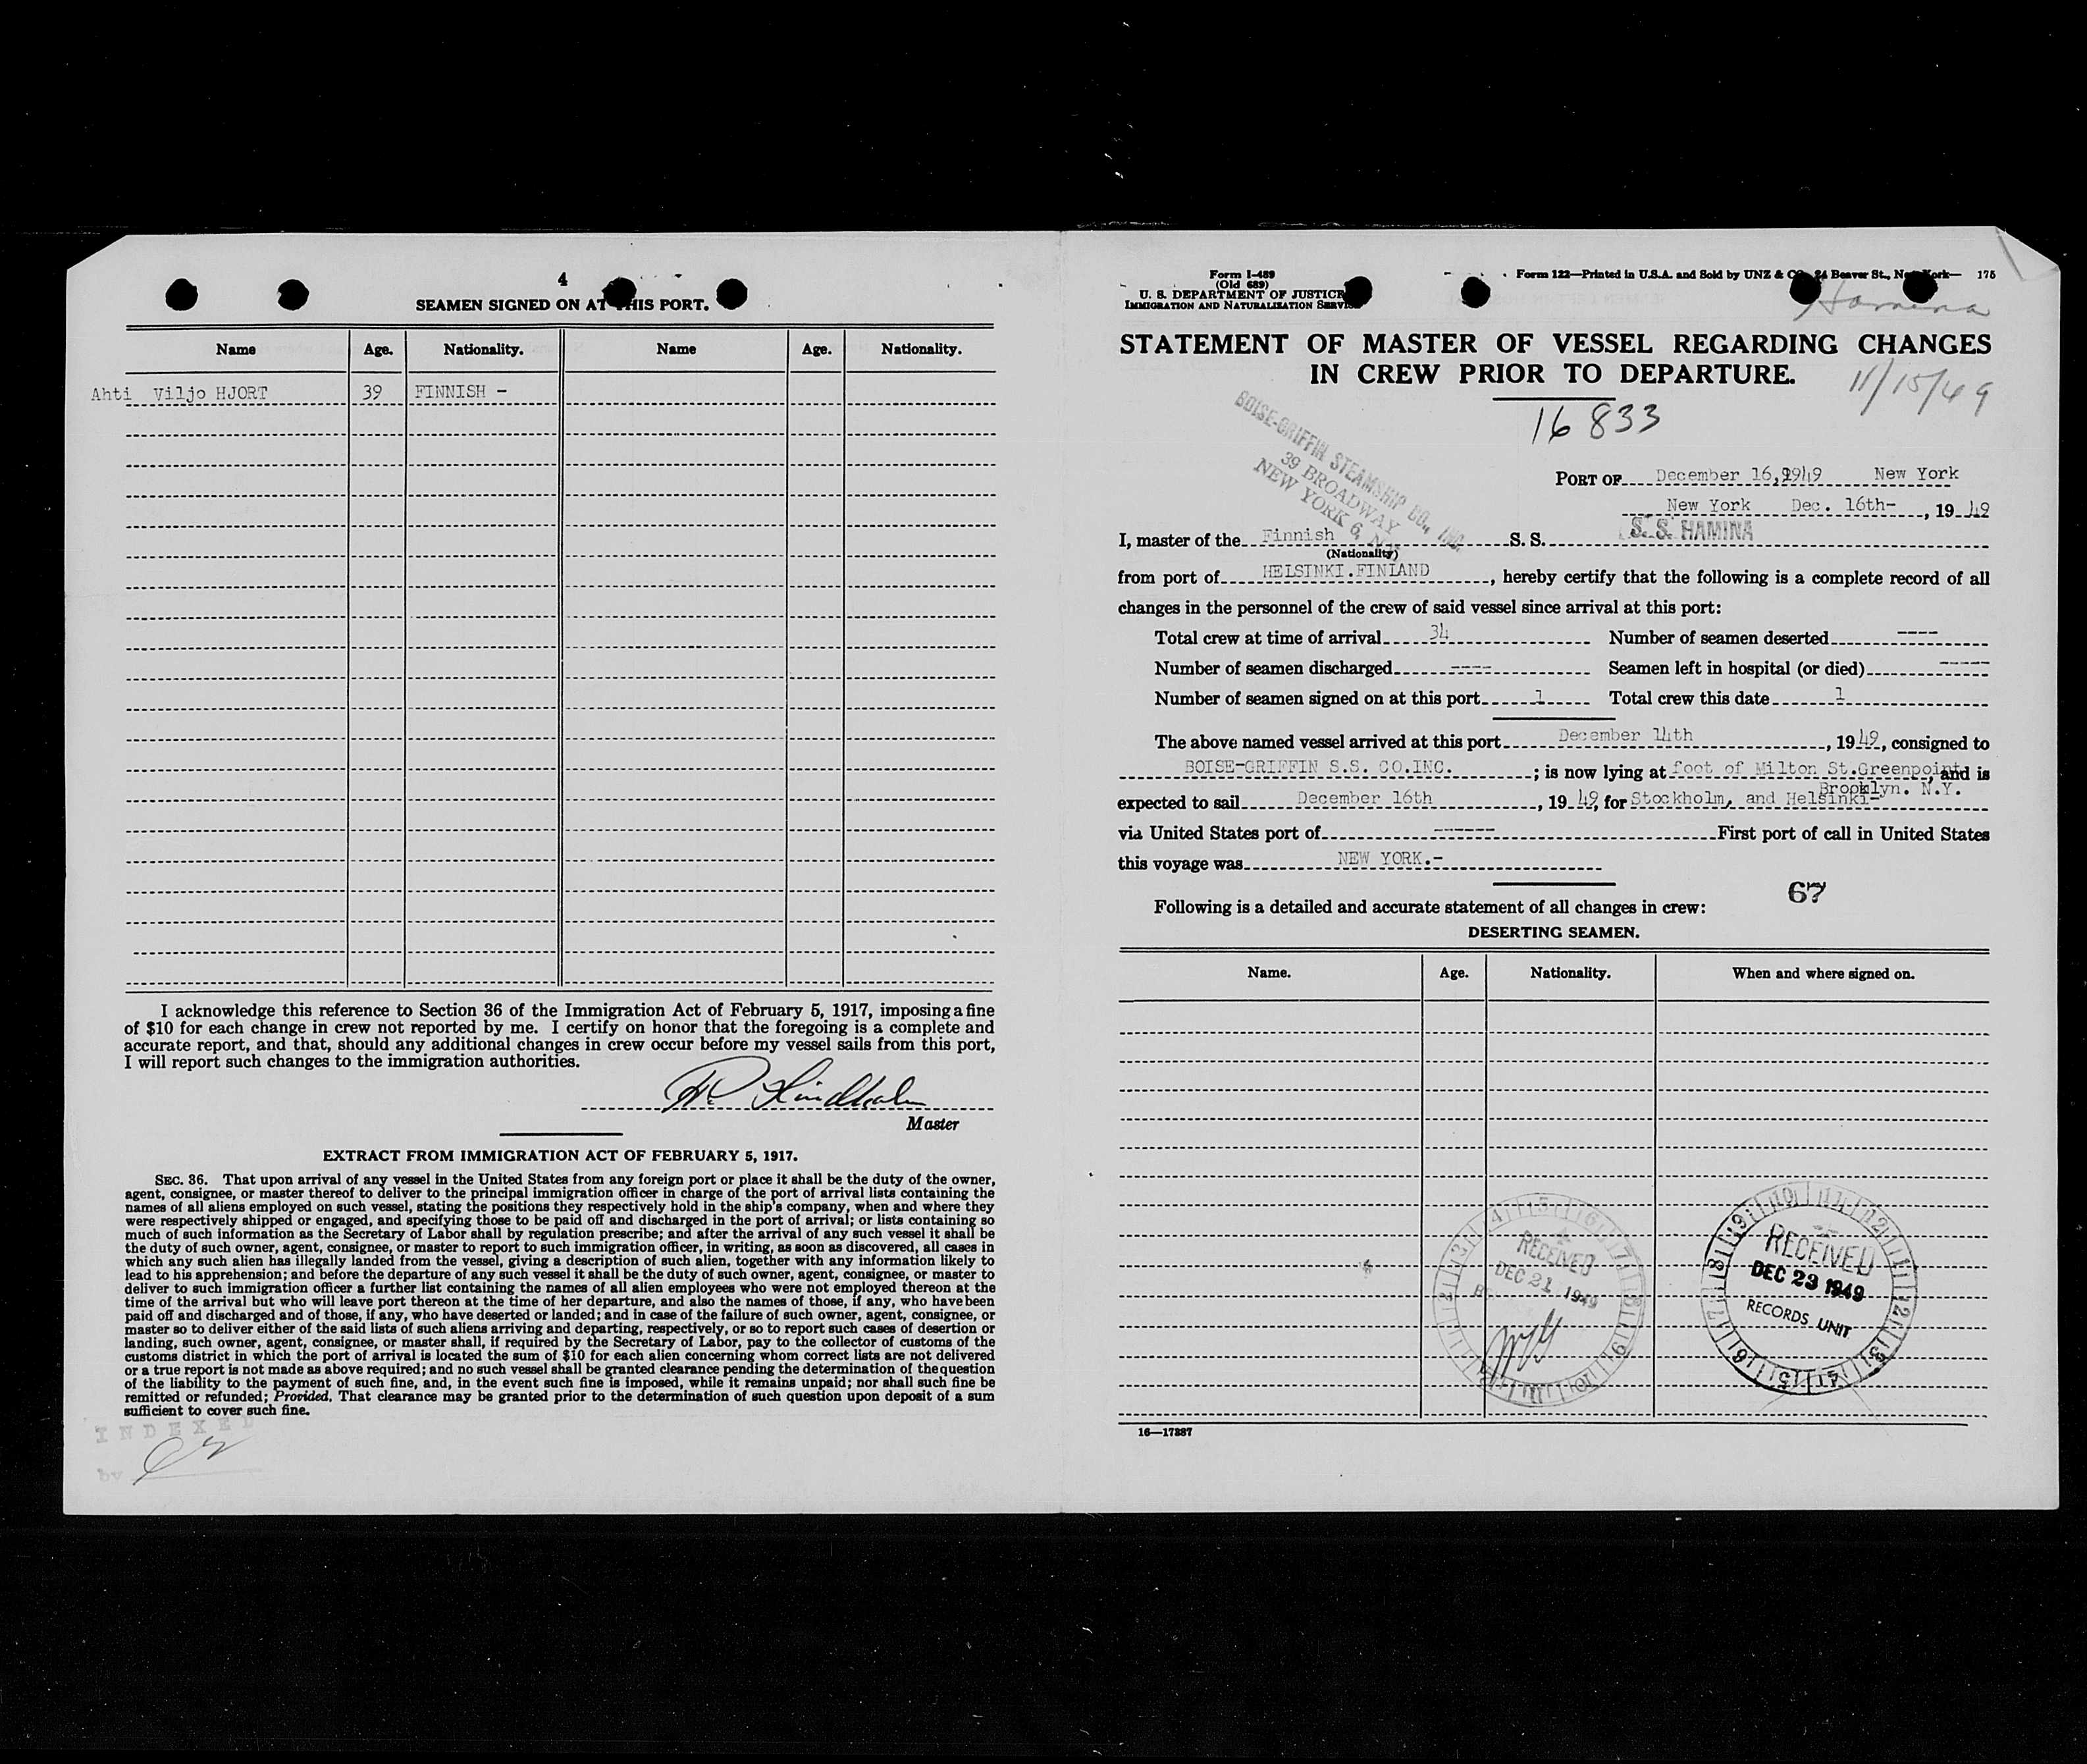 4
SEAMEN SIGNED ON AT THIS PORT.
Name Age. Nationality. Name Age. Nationality.
Ahti Viljo HJORT 39 FINNISH -
I acknowledge this reference to Section 36 of the Immigration Act of February 5, 1917, imposing a fine
of $10 for each change in crew not reported by me. I certify on honor that the foregoing is a complete and
accurate report, and that, should any additional changes in crew occur before my vessel sails from this port,
I will report such changes to the immigration authorities.
Master
EXTRACT FROM IMMIGRATION ACT OF FEBRUARY 5, 1917.
SEC. 36. That upon arrival of any vessel in the United States from any foreign port or place it shall be the duty of the owner,
agent, consignee, or master thereof to deliver to the principal immigration officer in charge of the port of arrival lists containing the
names of all aliens employed on such vessel, stating the positions they respectively hold in the ship's company, when and where they
were respectively shipped or engaged, and specifying those to be paid off and discharged in the port of arrival; or lists containing so
much of such information as the Secretary of Labor shall by regulation prescribe; and after the arrival of any such vessel it shall be
the duty of such owner, agent, consignee, or master to report to such immigration officer, in writing, as soon as discovered, all cases in
which any such alien has illegally landed from the vessel, giving a description of such alien, together with any information likely to
lead to his apprehension; and before the departure of any such vessel it shall be the duty of such owner, agent, consignee, or master to
deliver to such immigration officer a further list containing the names of all alien employees who were not employed thereon at the
time of the arrival but who will leave port thereon at the time of her departure, and also the names of those, if any, who have been
paid off and discharged and of those, if any, who have deserted or landed; and in case of the failure of such owner, agent, consignee, or
master so to deliver either of the said lists of such aliens arriving and departing, respectively, or so to report such cases of desertion or
landing, such owner, agent, consignee, or master shall, if required by the Secretary of Labor, pay to the collector of customs of the
customs district in which the port of arrival is located the sum of $10 for each alien concerning whom correct lists are not delivered
or a true report is not made as above required; and no such vessel shall be granted clearance pending the determination of the question
of the liability to the payment of such fine, and, in the event such fine is imposed, while it remains unpaid; nor shall such fine be
remitted or refunded; Provided, That clearance may be granted prior to the determination of such question upon deposit of a sum
sufficient to cover such fine.
INDEXED
by
Form I-489
(Old 689)
U. S. DEPARTMENT OF JUSTICE
IMMIGRATION AND NATURALIZATION SERVICE
Form 122—Printed in U.S.A. and Sold by UNZ & CO., 24 Beaver St., New York— 175
Hamina
STATEMENT OF MASTER OF VESSEL REGARDING CHANGES
IN CREW PRIOR TO DEPARTURE.
11/15/49
16833
BOISE-GRIFFIN STEAMSHIP CO., INC.
39 BROADWAY
NEW YORK 6, N.Y.
PORT OF December 16,1949 New York
New York Dec. 16th- , 19 49
I, master of the Finnish S. S. S. S. HAMINA
(Nationality)
from port of HELSINKI.FINLAND , hereby certify that the following is a complete record of all
changes in the personnel of the crew of said vessel since arrival at this port:
Total crew at time of arrival 34 Number of seamen deserted ----
Number of seamen discharged ---- Seamen left in hospital (or died) -----
Number of seamen signed on at this port 1 Total crew this date 1
The above named vessel arrived at this port December 14th , 19 49, consigned to
BOISE-GRIFFIN S.S. CO.INC. ; is now lying at foot of Milton St.Greenpoint, and is
Brooklyn. N.Y.
expected to sail December 16th , 19 49, for Stockholm, and Helsinki-
via United States port of ------ First port of call in United States
this voyage was NEW YORK.-
67
Following is a detailed and accurate statement of all changes in crew:
DESERTING SEAMEN.
Name. Age. Nationality. When and where signed on.
RECEIVED
DEC 21 1949
RECEIVED
DEC 23 1949
RECORDS UNIT
16—17887